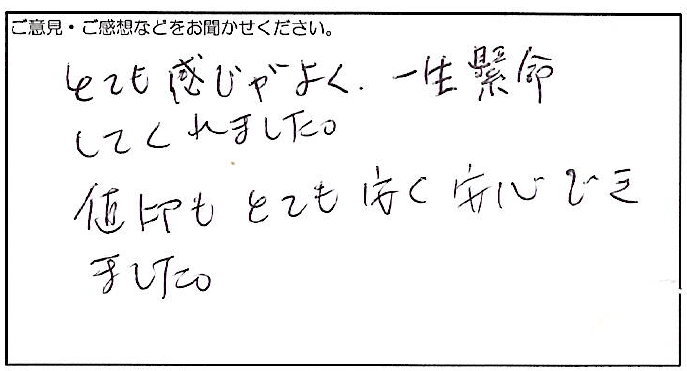 ご意見・ご感想などをお聞かせください。
とても感じがよく、一生懸命
してくれました。
値段もとても安く安心でき
ました。